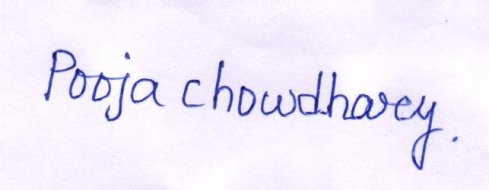 Pooja chowdharey.